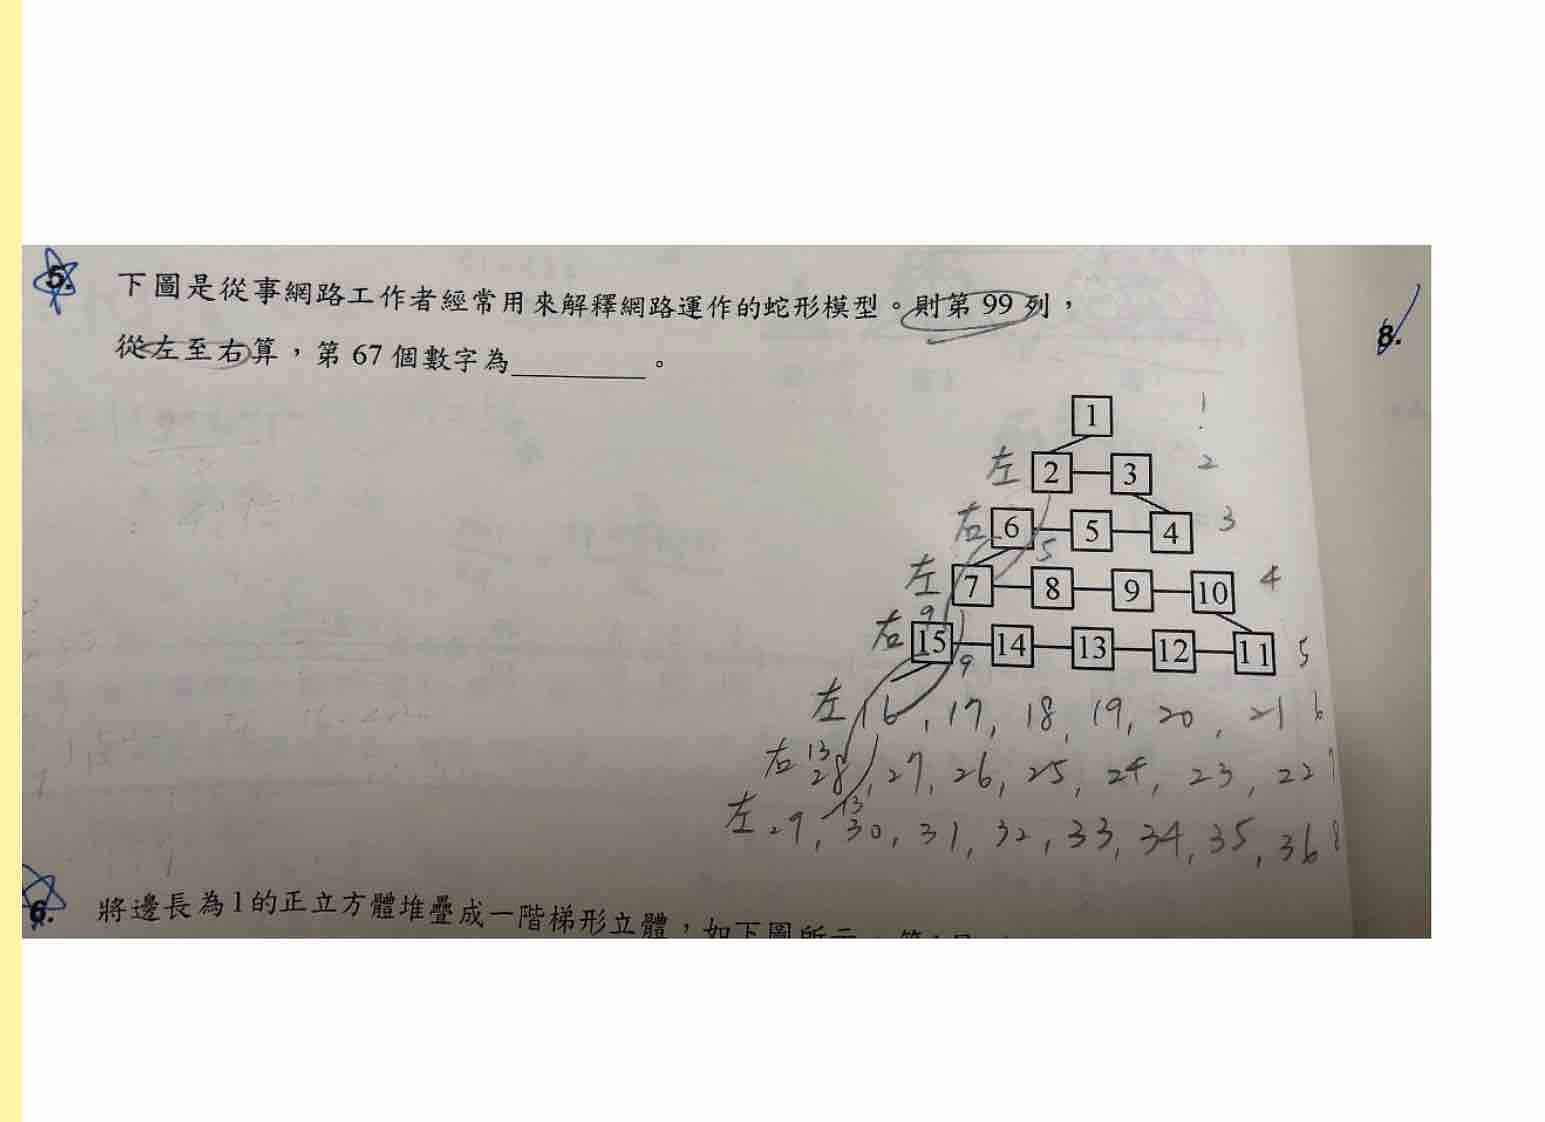 5. 下圖是從事網路工作者經常用來解釋網路運作的蛇形模型。則第 99 列，
從左至右算，第 67 個數字為________。
8.
1 1
左 2 3 2
右 6 5 4 3
5
左 7 8 9 10 4
9
右 15 14 13 12 11 5
9
左 16, 17, 18, 19, 20, 21 6
13
右 28, 27, 26, 25, 24, 23, 22 7
13
左 29, 30, 31, 32, 33, 34, 35, 36 8
6. 將邊長為1的正立方體堆疊成一階梯形立體，如下圖所示，第1